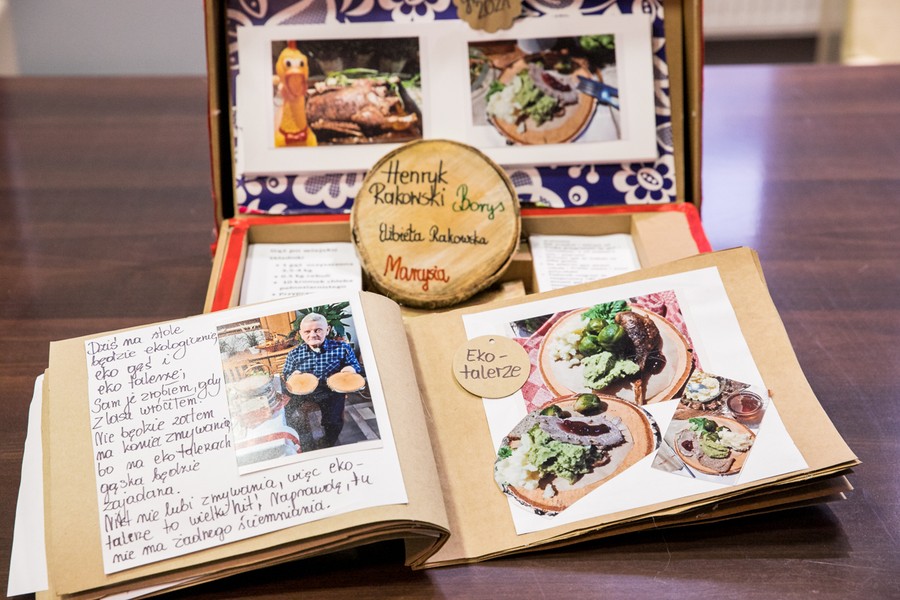 2021
Henryk
Rakowski Borys
Elżbieta Rakowska
Marysia
składniki
Dziś na stole
będzie ekologicznie,
eko gęś i
eko talerze;
Sam je zrobiłem, gdy
z lasu wróciłem.
Nie będzie zatem
na koniec zmywania,
bo na eko talerzach
gąska będzie
zajadana.
Nikt nie lubi zmywania, więc eko-
talerze to wielki hit! Naprawdę, tu
nie ma żadnego ściemniania.
Eko-
talerze